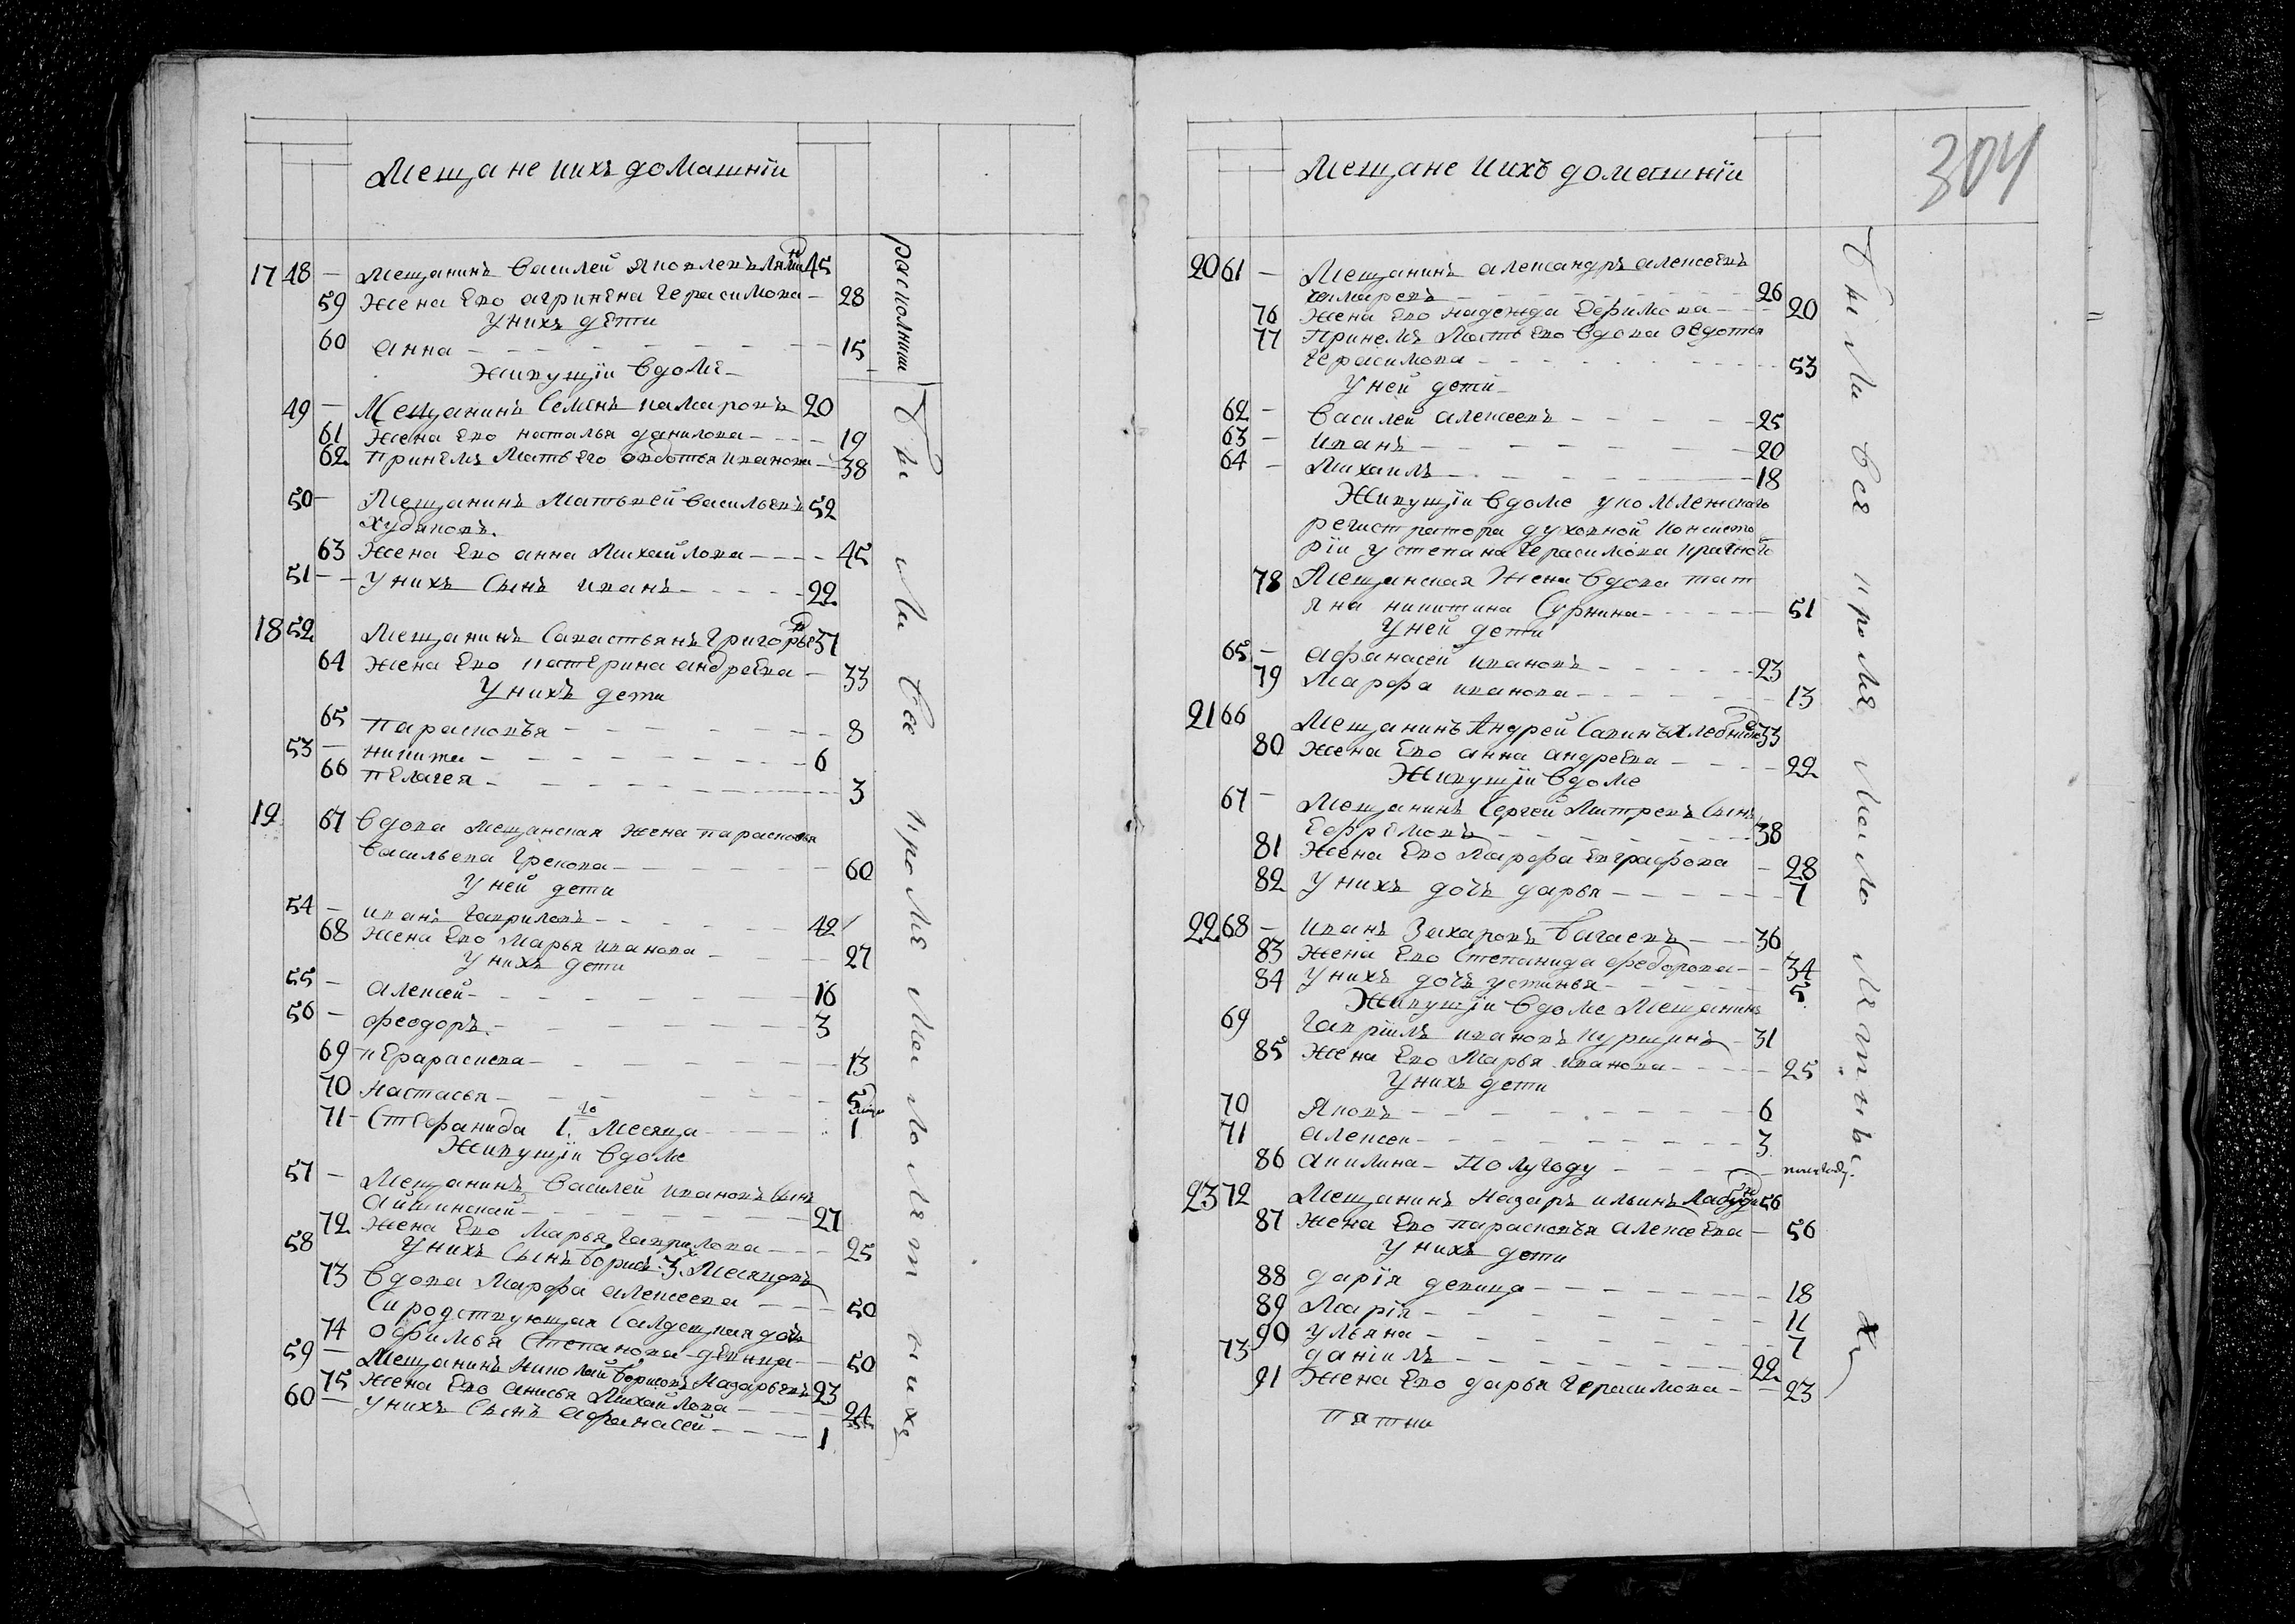 Мещане иихъ домашнiи
17 48 — Мещанинъ Василей Яковлевъ 45
59 Жена Ево агрипена Герасимова — 28
Унихъ дети
60 анна — 15
Живущiи вдоме
49 — Мещанинъ Семенъ камаровъ 20
61 Жена Ево наталья данилова — 19
62 Принемъ Мать Его овдотья иванова — 38
50 — Мещанинъ Матьвей васильевъ 52
Худяковъ
63 Жена Ево анна Михайлова — 45
51 — Унихъ Сынъ иванъ — 22
18 52 Мещанинъ Савастьянъ Григорьев 37
64 Жена Ево катерина андреева — 33
Унихъ дети
65 Парасковья — 8
53 — никита — 6
66 Пелагея — 3
19 67 Вдова мещанская жена парасковья
Васильева Грекова — 60
Уней дети
54 — иванъ Гавриловъ — 42
68 Жена Ево Марья иванова — 27
Унихъ дети
55 — Алексей — 16
56 — Феодоръ — 3
69 — 13
70 Настасья — 5
71 — Стефанида 1го Месяца — 1
Живущiи вдоме
57 — Мещанинъ Василей ивановъ Сынъ
— 27
72 Жена Ево Марья Гаврилова — 25
58 Унихъ Сынъ борисъ 3х Месяцовъ
73 Вдова Марфа алексеева — 50
Сиродствующая Салдацкая дочь
74 офимья Степанова девица — 50
59 — Мещанинъ Николай борисовъ Назарьевъ 23
75 Жена Ево анисья Михайлова — 24
60 — Унихъ Сынъ афанасей — 1
расколники
были все кроме малолетнихъ
304
Мещане иихъ домашнiи
20 61 — Мещанинъ александръ алексеевъ
камаровъ — 26
76 Жена Ево надежда Ефимова — 20
77 Принемъ Мать Ево вдова овдотья
Герасимова — 53
Уней дети
62 — Василей алексеевъ — 25
63 — иванъ — 20
64 — Михаилъ — 18
Живущiи вдоме укольлежскаго
регистратора духовной консисто
рiи устепана Герасимова
78 Мещанская Жена вдова тат
яна никитина Сурнина — 51
Уней дети
65 — афанасей ивановъ — 23
79 Марфа иванова — 13
21 66 Мещанинъ Андрей Савинъ Хлебников 33
80 Жена Ево анна андреева — 22
Живущiи вдоме
67 — Мещанинъ Сергей Митревъ Сынъ
Ефремовъ — 38
81 Жена Ево Марфа Евграфова — 28
82 Унихъ дочь дарья — 7
22 68 — иванъ Захаровъ Багаевъ — 36
83 Жена Ево Степанида федорова — 34
84 Унихъ дочь устинья — 5
Живущiи вдоме Мещанинъ
69 Гаврiилъ ивановъ Куршинъ — 31
85 Жена Ево Марья иванова — 25
Унихъ дети
70 Яковъ — 6
71 алексеи — 3
86 Акилина — Полугоду — полугоду
23 72 Мещанинъ Назаръ ильинъ 56
87 Жена Ево парасковья алексеева — 56
Унихъ дети
88 дарiя девица — 18
89 Марiя — 11
90 ульяна — 7
73 данiилъ — 22
91 Жена Ево дарья Герасимова — 23
были все кроме малолетныхъ